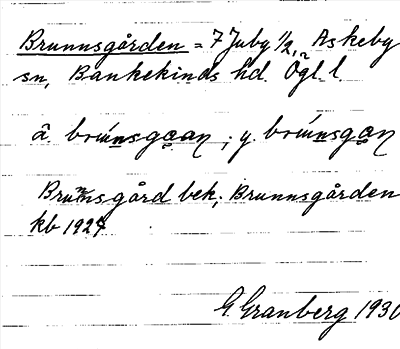 Brunnsgården = 7 Juby 1/2, Askeby
sn, Bankekinds hd. Ögl. l.
â brúnsgọan ; y. brúnsgọn
Brunnsgård bek; Brunnsgården
kb 1927
G Granberg 1930